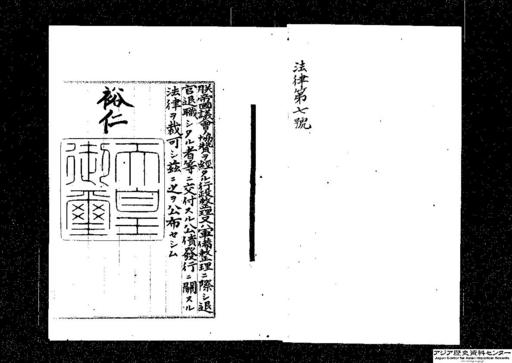 法律第七號
朕帝國議會ノ協贊ヲ經タル行政整理又ハ軍備整理ニ際シ退
官退職シタル者等ニ交付スル公債發行ニ關スル
法律ヲ裁可シ茲ニ之ヲ公布セシム
裕仁
天皇
御璽
アジア歴史資料センター
Japan Center for Asian Historical Records